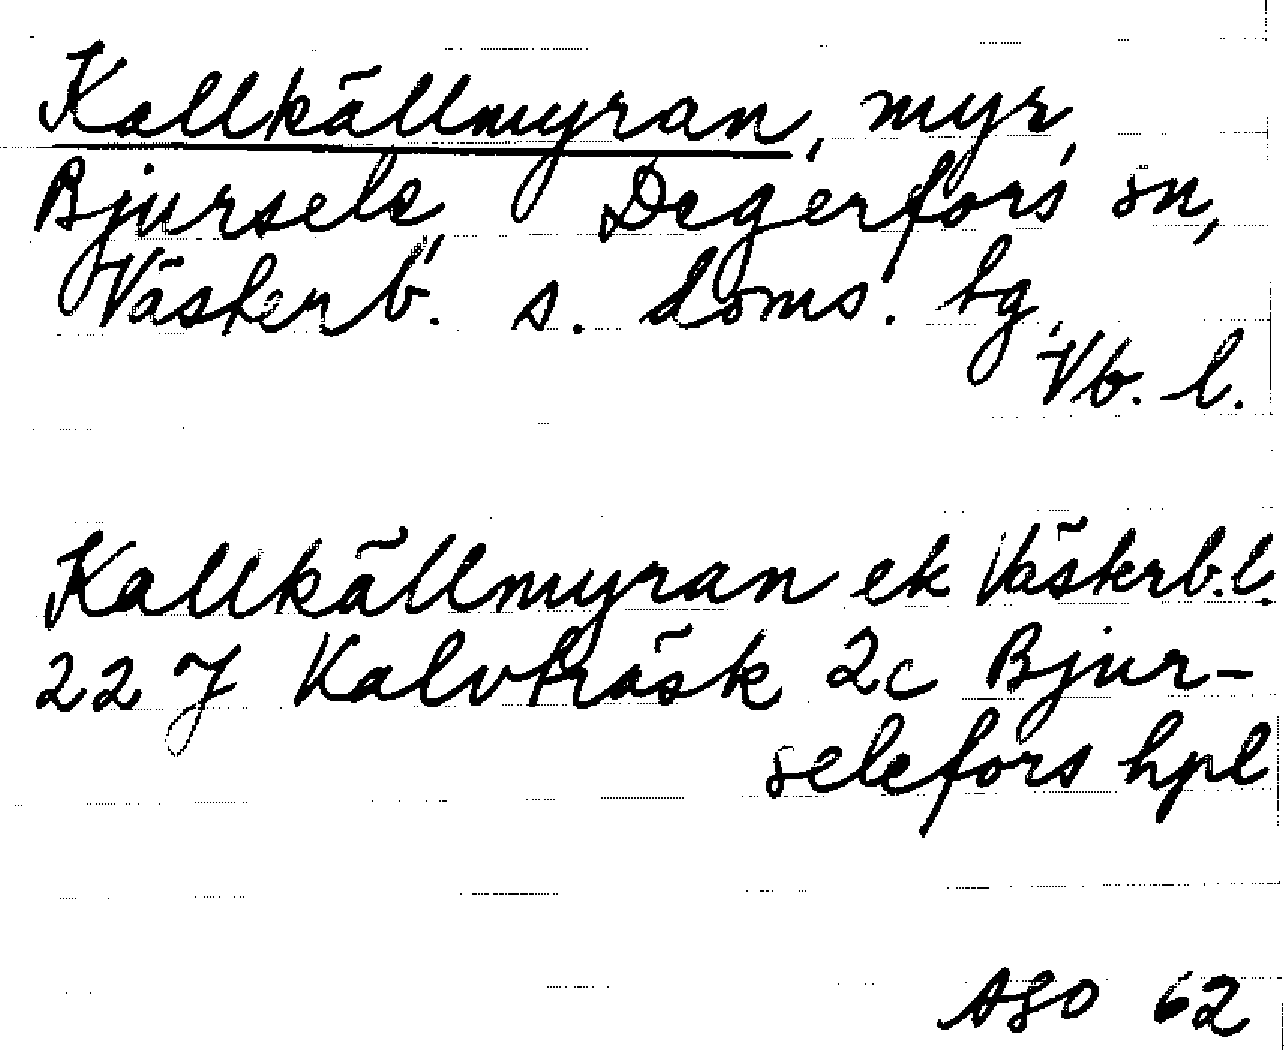 Kallkällmyran, myr,
Bjursele, Degerfors sn,
Västerb. s. doms. tg,
Vb. l.
Kallkällmyran ek Västerb.l.
22 J Kalvträsk 2c Bjur-
selefors hpl
ASO 62